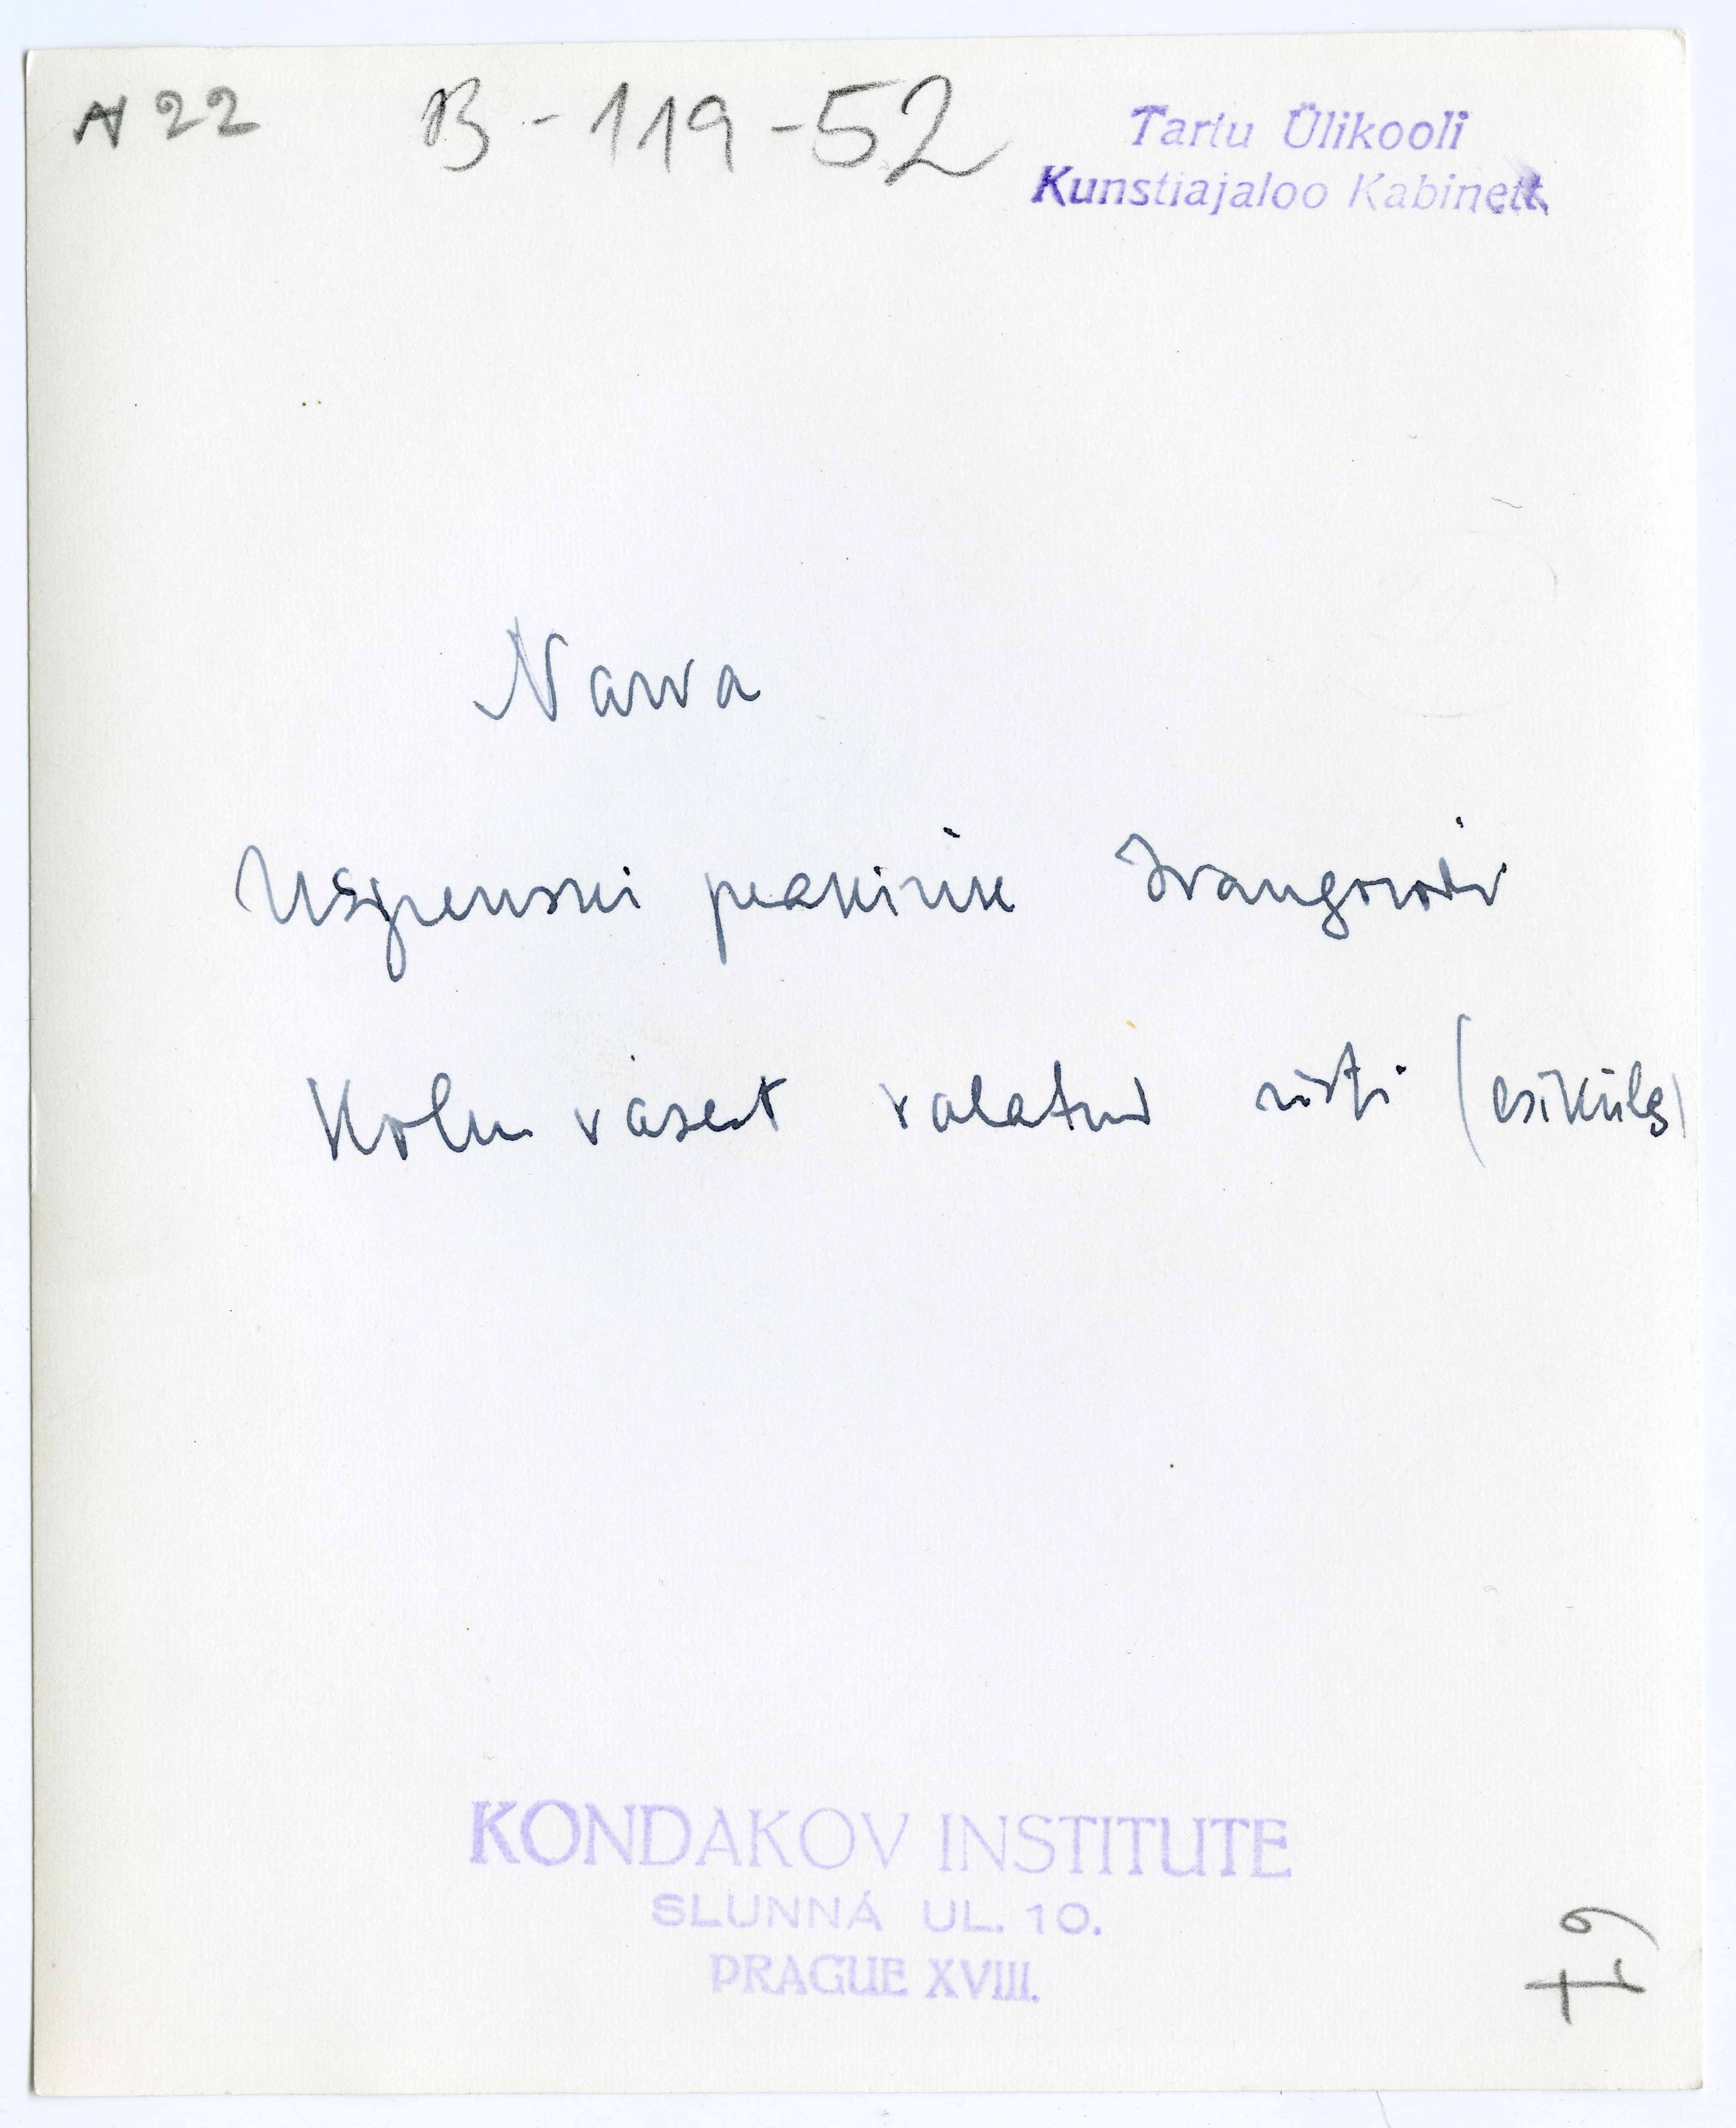 N 22 B-119-52
Tartu Ülikooli
Kunstiajaloo Kabinett
Narva
Uspenski peakirik Ivangorodis
Kolm vasest valatud risti (esikülg)
KONDAKOV INSTITUTE
SLUNNÁ UL. 10.
PRAGUE XVIII.